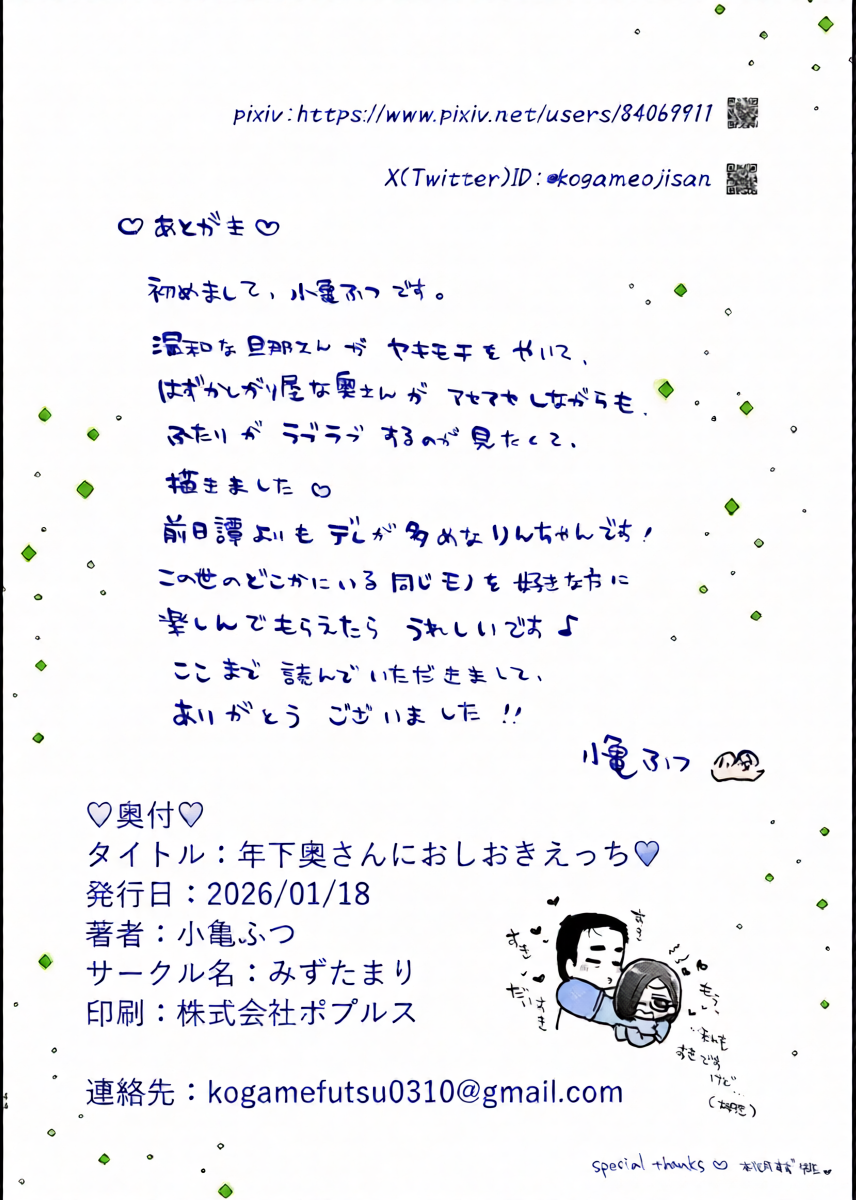 pixiv:https://www.pixiv.net/users/84069911
X(Twitter)ID:@kogameojisan
♡あとがき♡
初めまして、小亀ふつです。
温和な旦那さんがヤキモチをやいて、
はずかしがり屋な奥さんがアセアセしながらも、
ふたりがラブラブするのが見たくて、
描きました♡
前日譚よりもデレが多めなりんちゃんです!
この世のどこかにいる同じモノを好きな方に
楽しんでもらえたらうれしいです♪
ここまで読んでいただきまして、
ありがとうございました!!
小亀ふつ
♡奥付♡
タイトル：年下奥さんにおしおきえっち♥
発行日：2026/01/18
著者：小亀ふつ
サークル名：みずたまり
印刷：株式会社ポプルス
連絡先：kogamefutsu0310@gmail.com
すき
すき
だいすき
もう、
…もすきですけど…
44
special thanks♡